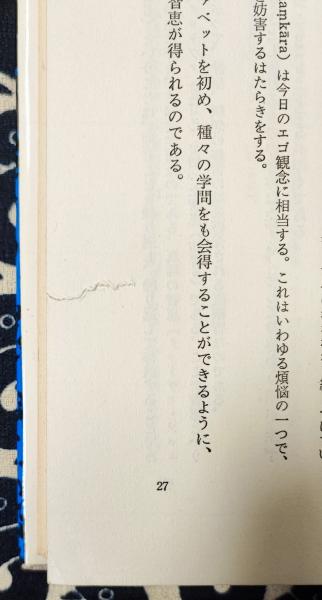 aṃkāra）は今日のエゴ観念に相当する。これはいわゆる煩悩の一つで、
妨害するはたらきをする。
ァベットを初め、種々の学問をも会得することができるように、
智恵が得られるのである。
27